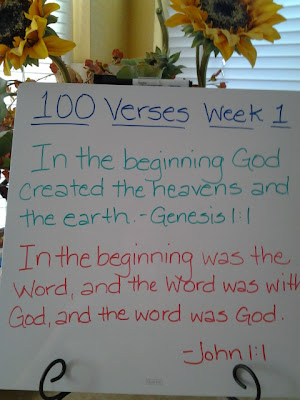 100 Verses Week 1
In the beginning God
created the heavens and
the earth.-Genesis 1:1
In the beginning was the
Word, and the Word was with
God, and the word was God.
-John 1:1